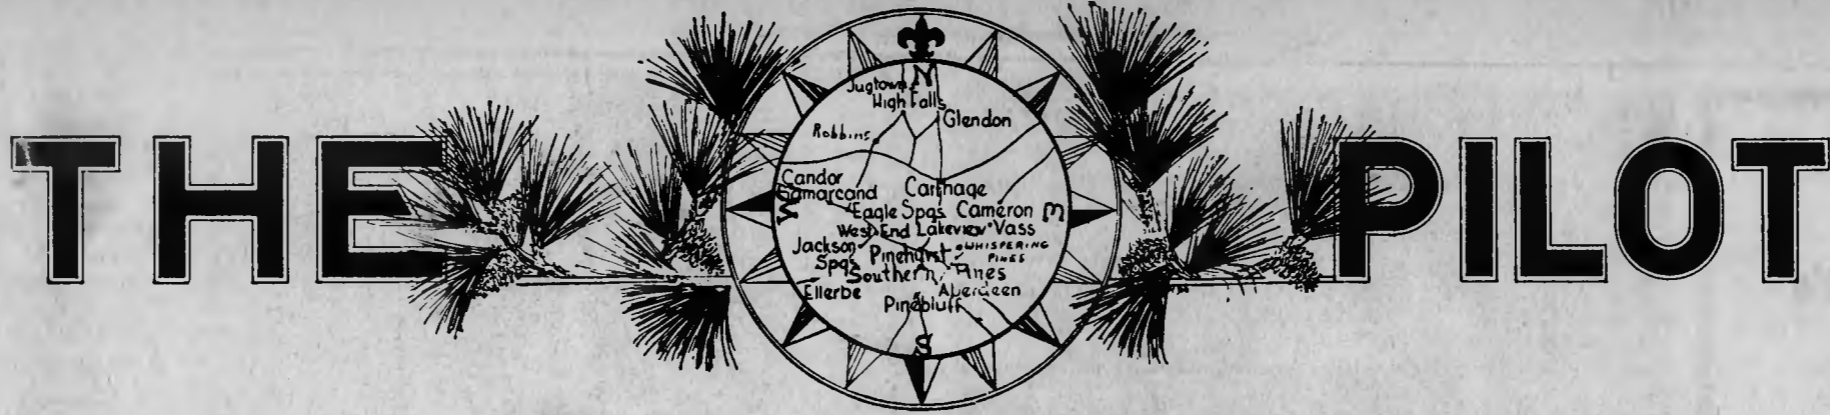 THE PILOT
N
Jugtown
High Falls
Glendon
Robbins
Candor
Samarcand
Carthage
W
Eagle Spgs Cameron E
West End Lakeview Vass
Jackson Spgs
Pinehurst
WHISPERING PINES
Southern Pines
Ellerbe
Aberdeen
Pinebluff
S